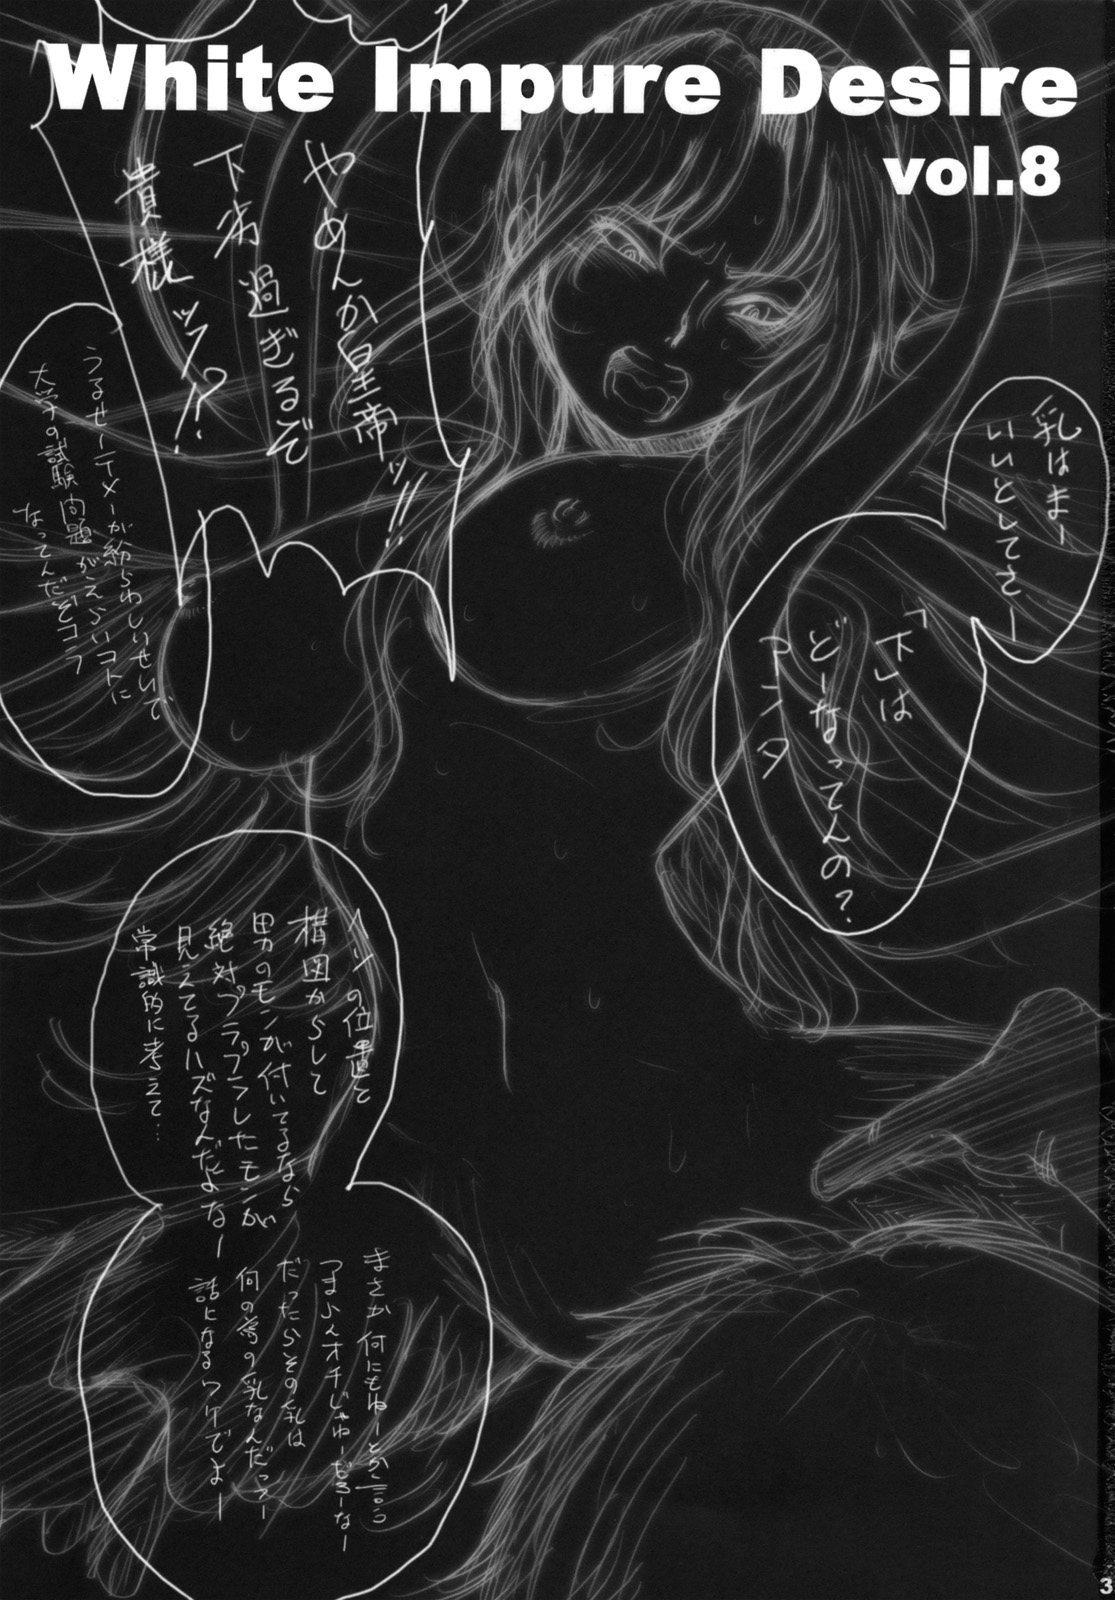 White Impure Desire
vol.8
やめんか皇帝ッ!!
下劣過ぎるぞ
貴様ッッ!?
乳はまー
いいとしてさー
「下」は
どーなってんの?
アンタ
うるせーテメーが紛らわしいせいで
大学の試験問題がえらいコトに
なってんだぞコラ
ヘソの位置と
構図からして
男のモンが付いてるなら
絶対プラプラしたモンが
見えてるハズなんだよなー
常識的に考えて…
まさか何にもねーとか言う
つまらんオチじゃねーだろーなー
だったらその乳は
何の為の乳なんだっつー
話になるワケでよー
3